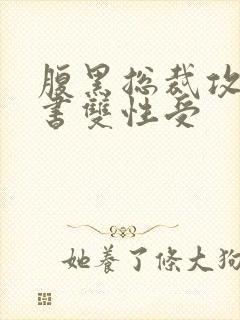 腹黑总裁攻
書雙性受
她養了條大狗